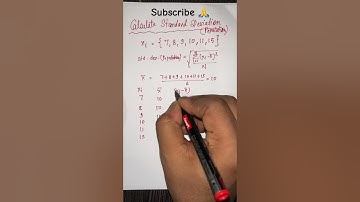 Subscribe 🙏
Calculate Standard Deviation
(Population)
xi = {7, 8, 9, 10, 11, 15}
std. dev (Population) = √(Σ(xi-x̄)²/N)
x̄ = (7+8+9+10+11+15)/6 = 10
xi x̄ (xi-x̄)
7 10
8 10
9
10
11
15